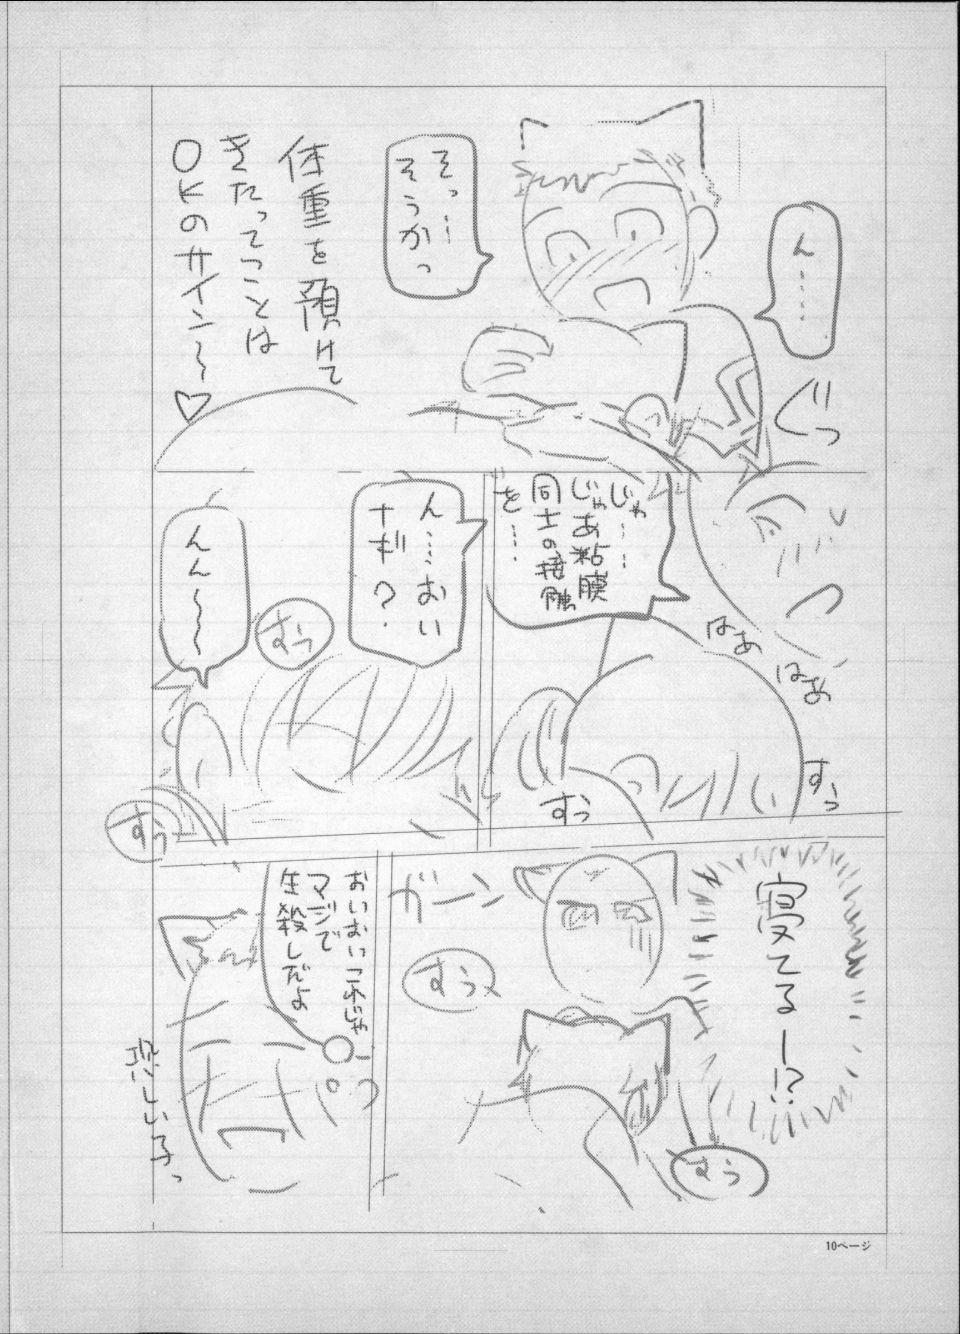 ん……
ぐっ
そっ…
そうかっ
体重を預けて
きたってことは
OKのサイン〜♡
じゃ……
じゃあ粘膜
同士の接触
を……
はぁ
はぁ
すぅ
すぅ
ん……おい
ナギ?
すぅ
んん〜〜
すぅ
寝てるー!?
ガーン
すぅ
すぅ
おいおいこれじゃ
マジで
生殺しだよ
恐しい子っ
10ページ